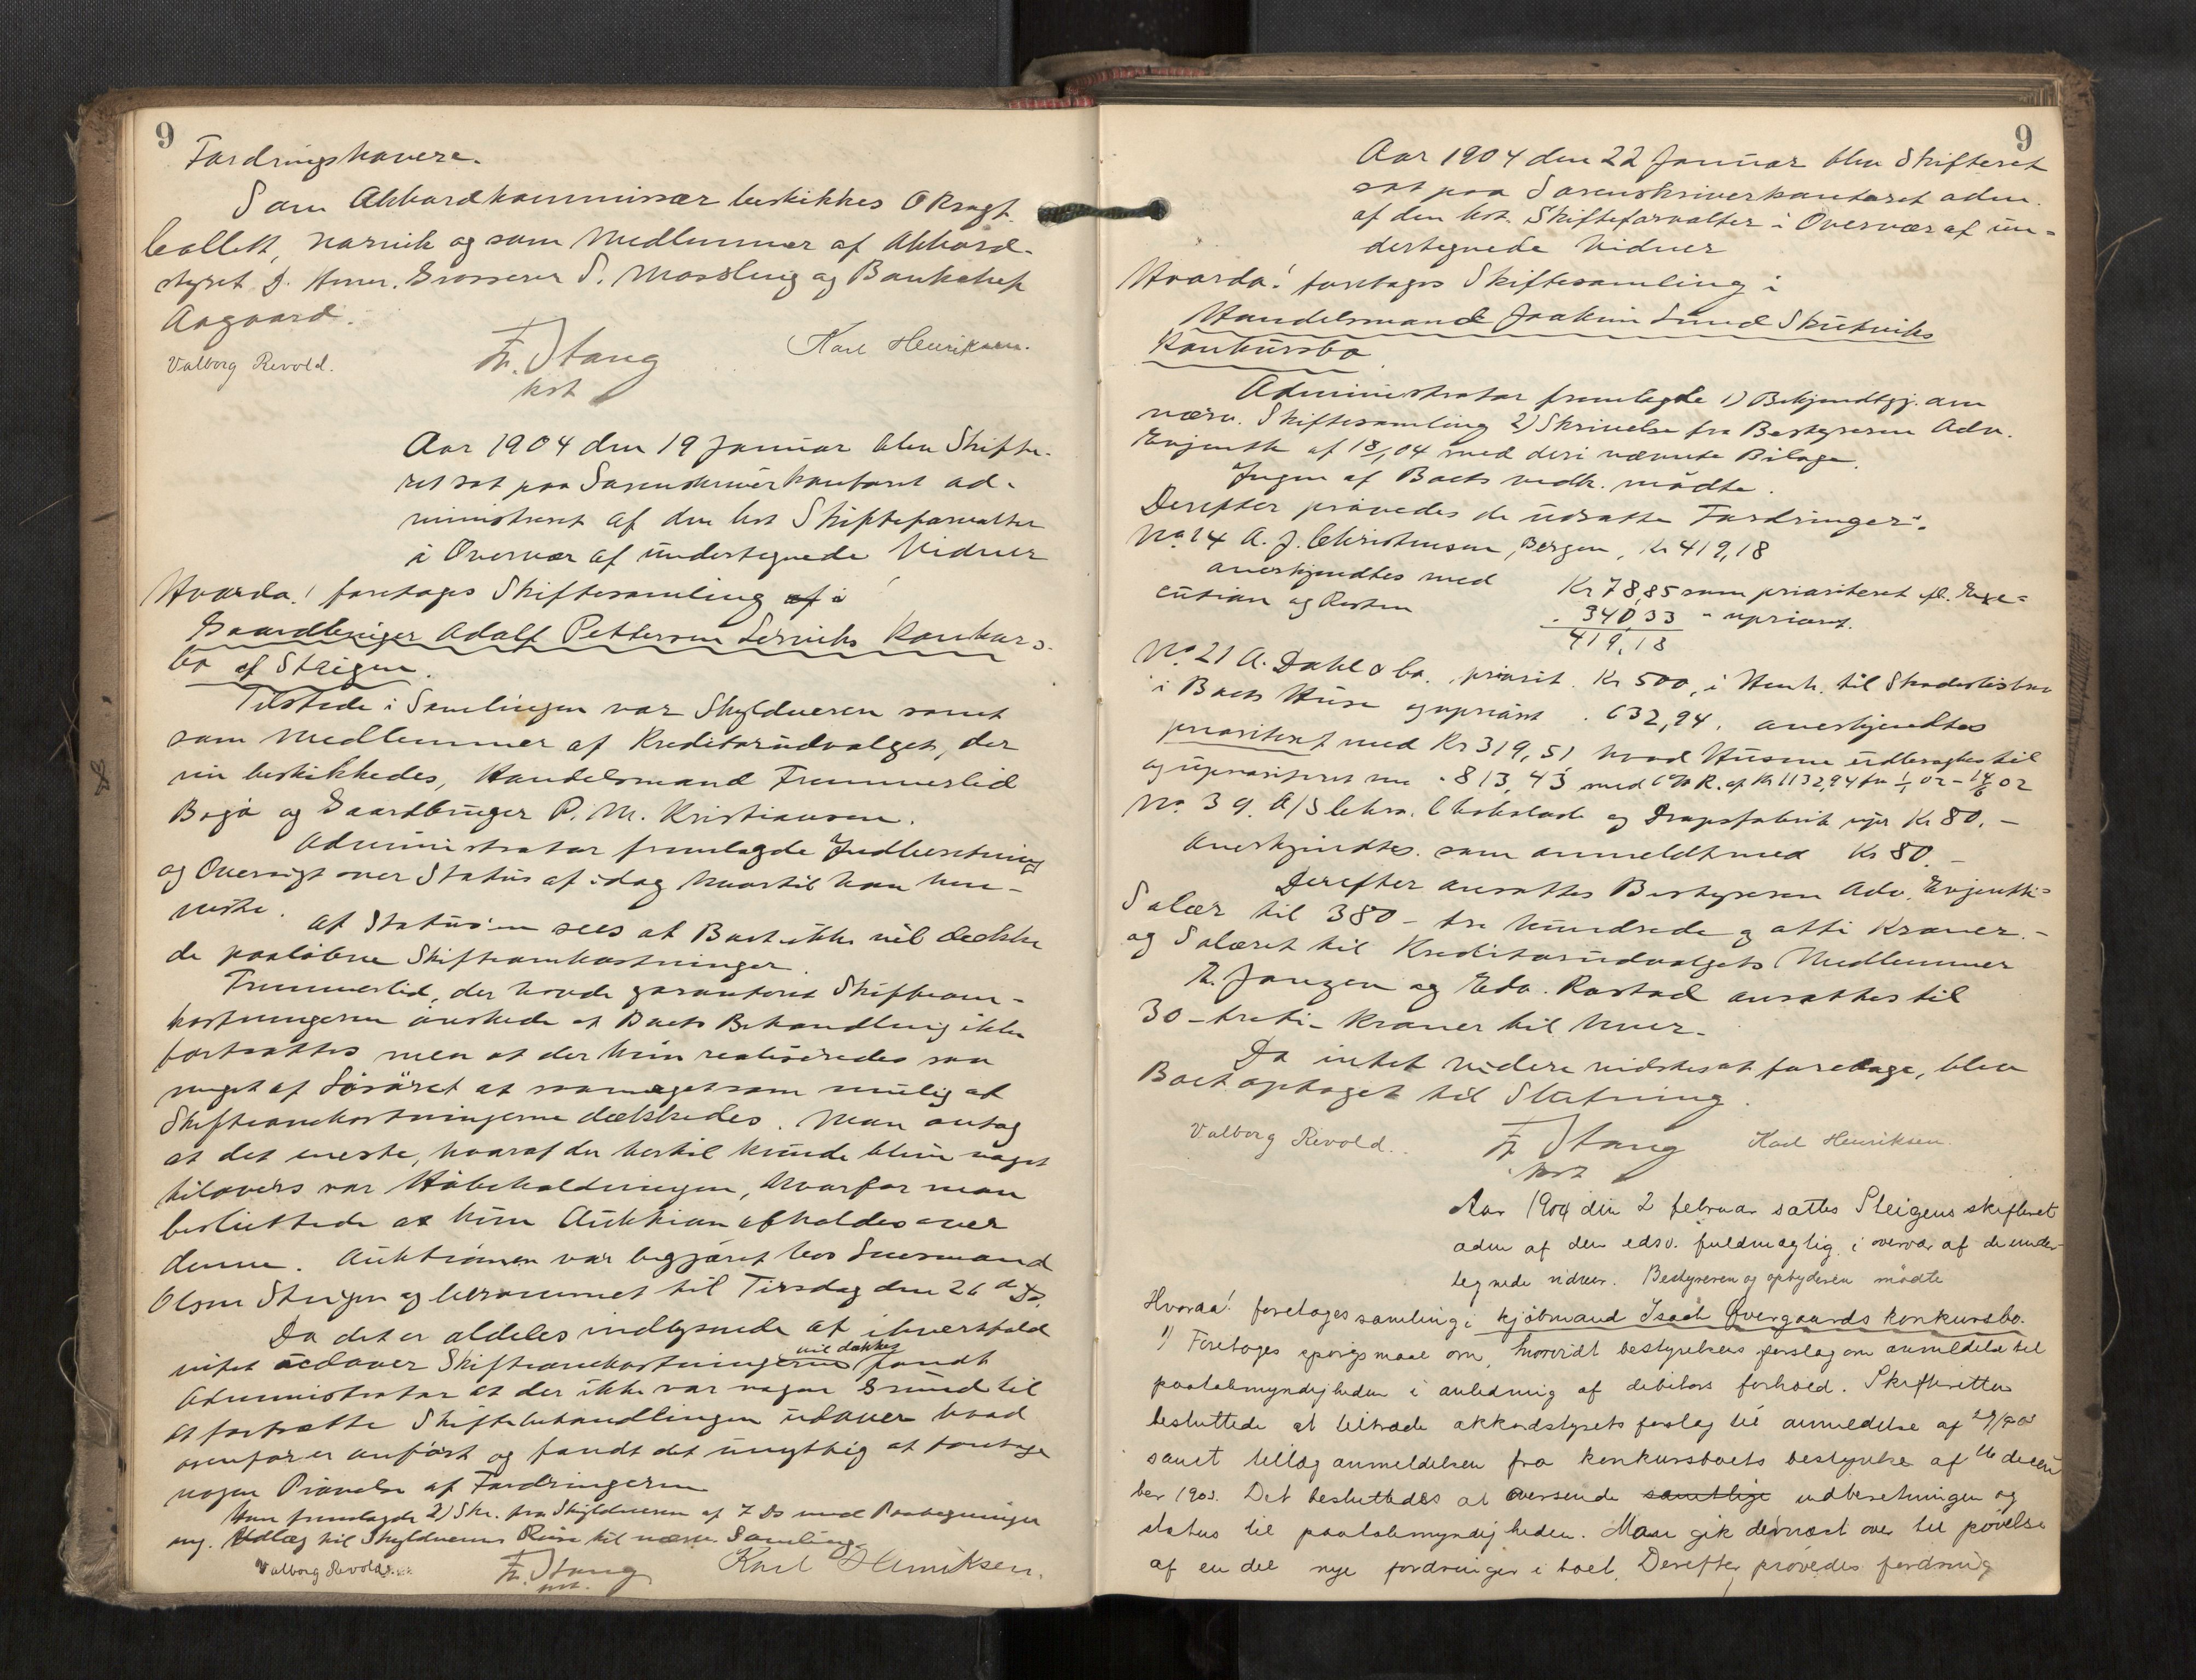 9
Fordringshavere.
Som Akkordkommissær beskikkes ORsagf.
Collett, Narvik og som Medlemmer af Akkord-
styret D. Herrer. Grosserer S. Mossling og Bankchef
Aagaard.
Valborg Revold. Fr. Stang Karl Henriksen.
kst
Aar 1904 den 19 Januar blev Skifte-
ret sat paa Sorenskriverkontoret ad-
ministreret af den kst Skifteforvalter
i Overvær af undertegnede Vidner
Hvorda! foretages Skiftesamling af i
Gaardbruger Adolf Petterson Lerviks Konkurs-
bo af Steigen.
Tilstede i Samlingen var Skyldneren samt
som Medlemmer af Kreditorudvalget, der
nu beskikkedes, Handelsmand Fremmerlid
Bogø og Gaardbruger P. M. Kristiansen.
Administrator fremlagde Indberetning
og Oversigt over Status af idag hvortil han hen-
viste.
Af Status'en sees at Boet ikke vil dække
de paaløbne Skifteomkostninger.
Fremmerlid, der havde garanteret Skifteom-
kostningerne ønskede at Boets Behandling ikke
fortsattes men at der kun realiseredes saa
meget af Løsøret at saameget som mulig af
Skifteomkostningerne dækkedes. Man antog
at det eneste, hvoraf der hertil kunde blive noget
tilovers var Høbeholdningen, hvorfor man
besluttede at kun Auktion afholdes over
denne. Auktionen var begjæret hos Lensmand
Olsen Steigen og berammet til Tirsdag den 26 d Ds.
Da det er aldeles indlysende at ihvertfald
intet udover Skifteomkostningerne vil dækkes fandt
Administrator at der ikke var nogen Grund til
at fortsætte Skiftebehandlingen udover hvad
ovenfor er anført og fandt det unyttig at foretage
nogen Prøvelse af Fordringerne
Han fremlagde 2) Skr. fra Skyldneren af 7 Ds med Paategninger
ang. Udlæg til Skyldnerens Reise til nærv. Samling.
Valborg Revold. Fr. Stang Karl Henriksen.
kst.
9
Aar 1904 den 22 Januar blev Skifteret
sat paa Sorenskriverkontoret adm.
af den kst. Skifteforvalter i Overvær af un-
dertegnede Vidner
Hvorda! foretages Skiftesamling i
Handelsmand Joakim Lund Skutviks
Konkursbo
Administrator fremlagde 1) Bekjendtgj. om
nærv. Skiftesamling 2) Skrivelse fra Bestyreren Adv.
Evjenth af 18/1 04 med deri nævnte Bilage.
Ingen af Boets vedk. mødte.
Derefter prøvedes de udsatte Fordringer:
No 14 A. J. Christensen, Bergen, Kr 419,18
anerkjendtes med Kr 78,85 som prioriteret ifl. Exe-
cution og Resten - 340,33 - uprioret.
419,18
No 21 A. Dahl & Co. priorit. Kr 500, i Henh. til
i Boets Huse og uprioret . 632,94. anerkjendtes
prioriteret med Kr 319,51 hvad Husene udbragtes til
og uprioriteret med - 813,43 med 6 % R. af Kr 1132,94 fra 1/1 02 - 14/6 02
No. 39. A/S Chra. Chokolade og Dropsfabrik upr Kr 80.-
Anerkjendtes som anmeldt med Kr 80.-
Derefter ansattes Bestyreren Adv. Evjenths
Salær til 380 - tre hundrede og otti Kroner.-
og Salæret til Kreditorudvalgets Medlemmer
R. Janzen og Edv. Rostad ansattes til
30 - treti - Kroner til hver.
Da intet videre vidstes at foretage, blev
Boet optaget til Slutning.
Valborg Revold. Fr. Stang Karl Henriksen.
kst
Aar 1904 den 2 februar sattes Steigens skifteret
adm af den edsv. fuldmægtig i overvær af de under-
tegnede vidner. Bestyreren og opbyderen mødte
Hvorda! foretages samling i kjøbmand Isach Øvergaards konkursbo.
1) Foretages spørgsmaal om, hvorvidt bestyrelsens forslag om anmeldelse til
paatalemyndigheden i anledning af debitors forhold. Skifteretten
besluttede at tiltræde akkordstyrets forslag til anmeldelse af
samt tillæg anmeldelsen fra konkursboets bestyrelse af 16 decem
ber 1903. Det besluttedes at oversende samtlige indberetningen og
status til paatalemyndigheden. Man gik dernæst over til prøvelse
af en del nye fordringer i boet. Derefter prøvedes fordring